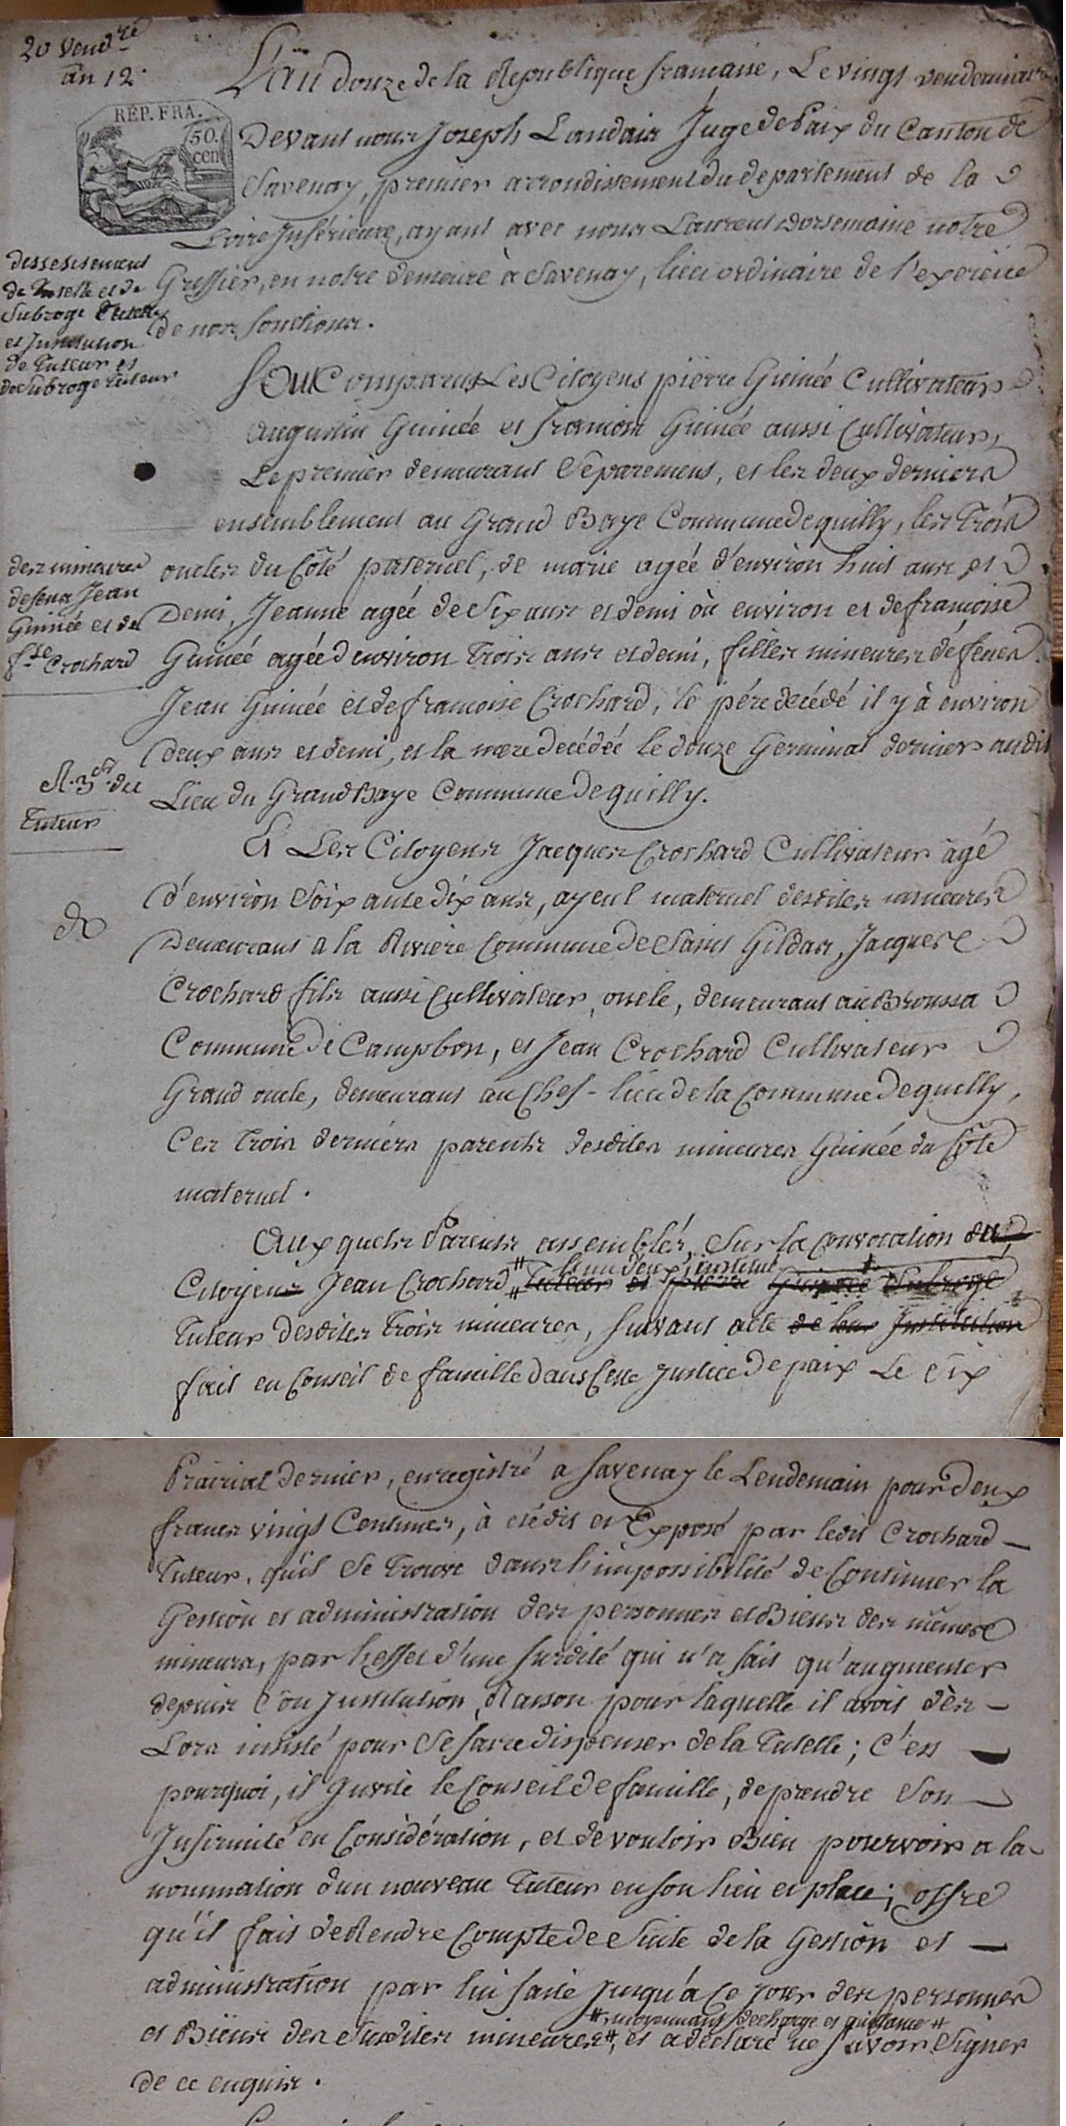 20 Vend.re
an 12.
REP. FRA.
50.
cen
L'an douze de la Republique francaise, Le vingt vendemiaire
Devant nous Joseph Landais Juge de Paix du Canton de
Savenay, premier arrondissement du departement de la
Loire Inférieure, ayant avec nous Laurent dorsemaine notre
Greffier, en notre demeure à Savenay, lieu ordinaire de l'exercice
de nos fonctions.
dessesissement
de Tutelle et de
Subrogé Tutelle
et Institution
de Tuteur et
de Subrogé Tuteur
des mineures
defeus Jean
Guinée et de
f.se Crochard
R. 3 du
Tuteur
Sont Comparus Les Citoyens pierre Guinée Cultivateur
Augustin Guinée et francois Guinée aussi Cultivateurs,
Le premier demeurant Séparement, et les deux derniers
ensemblement au Grand Baye Commune de quilly, les Trois
oncles du Côté paternel, de marie agée d'environ huit ans et
Demi, Jeanne agée de Six ans et demi où environ et de francoise
Guinée agée d'environ Trois ans et demi, filles mineures de feues
Jean Guinée et de francoise Crochard, le pére decédé il y à environ
deux ans et demi, et la mere decédée le douze Germinal dernier audit
Lieu du Grand Baye Commune de quilly.
Et Les Citoyens Jacques Crochard Cultivateur âgé
d'environ Soixante dix ans, ayeul maternel desdites mineures
Demeurant a la Riviere Commune de Saint Gildas, Jacques
Crochard fils aussi Cultivateur, oncle, demeurant au Broussa
Commune de Campbon, et Jean Crochard Cultivateur
Grand oncle, demeurant au Chef-lieu de la Commune de quilly,
Ces Trois derniers parents desdites mineures Guinée du Côté
maternel.
Auxquels Parents assemblés, Sur la convocation du
l'un d'eux, institué
Citoyens Jean Crochard Tuteur et pierre Guinée Subrogé
Tuteur desdites Trois mineures, suivant acte de leur Institution
fait en Conseil de famille dans Cette Justice de paix Le Six
Prairial dernier, enregistré a Savenay le Lendemain pour deux
francs vingt Centimes, à eté dit et Exposé par ledit Crochard
Tuteur, qu'il Se Trouve dans l'impossibilité de Continuer la
Gestion et administration des personnes et Biens des mêmes
mineurs, par l'effet d'une surdité qui n'a fait qu'augmenter
depuis Son Institution, Raison pour laquelle il avoit dès
Lors insisté pour Se faire dispenser de la Tutelle; C'est
pourquoi, il Invite le Conseil de famille, de prendre Son
Infirmité en Considération, et de vouloir Bien pourvoir a la
nommation d'un nouveau Tuteur en son lieu et place; offre
qu'il fait de Rendre Compte de Suite de la Gestion et
administration par lui faite jusqu'à Ce jour des personnes
moyennant decharge et quittance
et Biens des Susdites mineures, et a declaré ne Savoir Signer
de ce enquis.